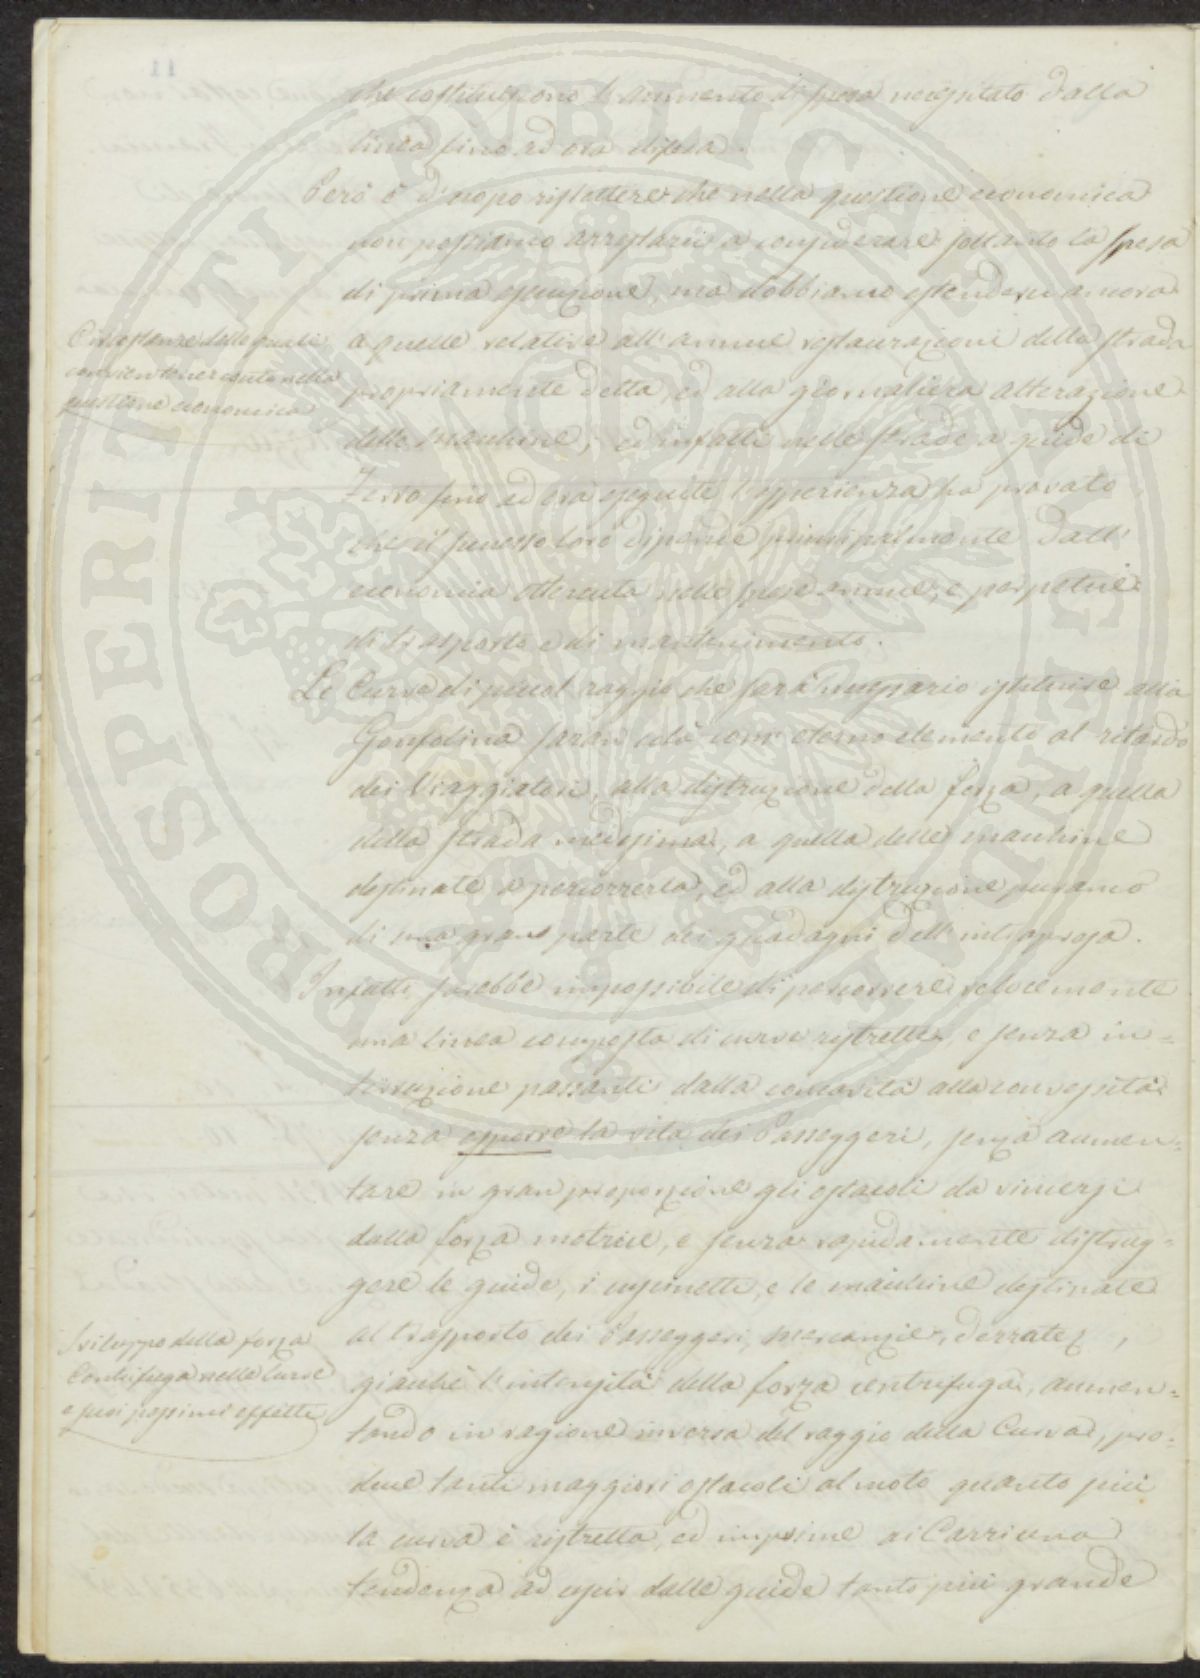 che costituiscono l'aumento di spesa necessitato dalla
linea fino ad ora difesa.
Però è d'uopo riflettere che nella questione economica
non possiamo arrestarci a considerare soltanto la spesa
di prima esecuzione, ma dobbiamo estenderci ancora
Circostanze delle quali
convien tener conto nella
questione economica
a quelle relative all'annue restaurazioni della strada
propriamente detta, ed alla giornaliera alterazione
delle macchine; ed infatti nelle strade a guide di
Ferro fino ad ora eseguite l'esperienza ha provato
che il successo loro dipende principalmente dall'
economia ottenuta nelle spese annue, e perpetue
di trasporto e di mantenimento.
Le Curve di piccol raggio che sarà necessario istituire alla
Gonfolina saran colà com' eterno elemento al ritardo
dei Viaggiatori, alla distruzione della forza, a quella
della strada medesima, a quella delle macchine
destinate a percorrerla, ed alla distruzione purancò
di una gran parte dei guadagni dell'intrapresa.
Infatti sarebbe impossibile di percorrere velocemente
una linea composta di curve ristrette, e senza in=
terruzione passanti dalla concavità alla convessità
senza esporre la vita dei Passeggeri, senza aumen=
tare in gran proporzione gli ostacoli da vincersi
dalla forza motrice, e senza rapidamente distrug=
gere le guide, i cuscinetti, e le macchine destinate
al trasporto dei Passeggeri, mercanzie, derrate,
Sviluppo della forza
Centrifuga nelle Curve
e suoi pessimi effetti
giacchè l'intensità della forza centrifuga, aumen=
tando in ragione inversa del raggio della Curva, pro=
duce tanti maggiori ostacoli al moto quanto più
la curva è ristretta, ed imprime ai Carri una
tendenza ad uscir dalle guide tanto più grande
PROSPERITATI PUBLICAE AUGENDAE